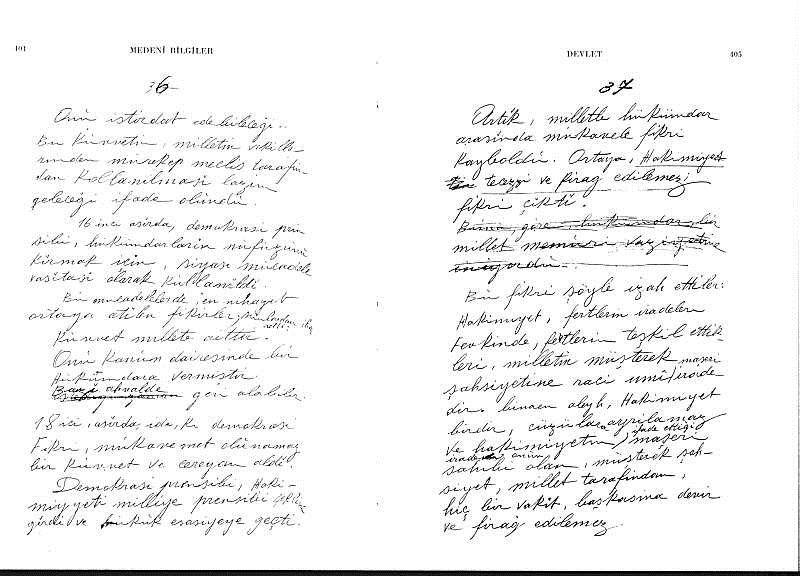 404
MEDENÎ BİLGİLER
36-
Onu istirdat edebileceği..
Bu kuvvetin, milletin vekille-
rinden mürekep meclis tarafın-
dan kollanılması lazım
geleceği ifade olundu.
16 ıncı asırda, demokrasi prin
sibi, hükümdarların nüfuzunu
kırmak için, siyasi mücadele
vasıtası olarak kullanıldı.
Bu mücadelelerde, en nihayet
ortaya atılan fikirler, şunlardan iba
retti:
Kuvvet millete aittir.
Onu kanun dairesinde bir
Hükümdara vermiştir
Bazı ahvalde
geri alabilir.
18 ici, asırda, ida, ki demokrasi
Fikri, mukavemet olunamaz
bir kuvvet ve cereyan aldı.
Demokrasi prensibi, Haki-
miyyeti milliye prensibi şekline
girdi ve hukuk esasiyeye geçti.
DEVLET
405
37
Artık, milletle hükümdar
arasında mukavele fikri
kayboldu. Ortaya, Hakimiyet
tecezzi ve firağ edilemez;
fikri çıktı.
Buna, göre, hükümdar, bir
millet memuru vaziyetine
iniyordu.
Bu fikri şöyle izah ettiler:
Hakimiyet, fertlerin iradeleri
fevkinde, fertlerin teşkil ettik-
leri, milletin müşterek maşeri
şahsiyetine raci umî irade
dir. bunaen aleyh, Hakimiyet
birdir, cüzülere ayrılamaz
ve hakimiyetin ifade ettiği
iradenin maşeri
sahibi olan, müşterek şah-
siyet, millet tarafından,
hiç bir vakit, başkasına devir
ve firağ edilemez.